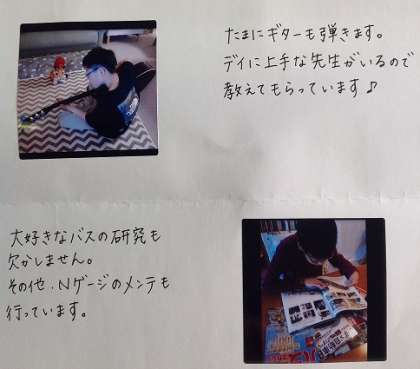 たまにギターも弾きます。
デイに上手な先生がいるので
教えてもらっています♪
大好きなバスの研究も
欠かしません。
その他、Nゲージのメンテも
行っています。